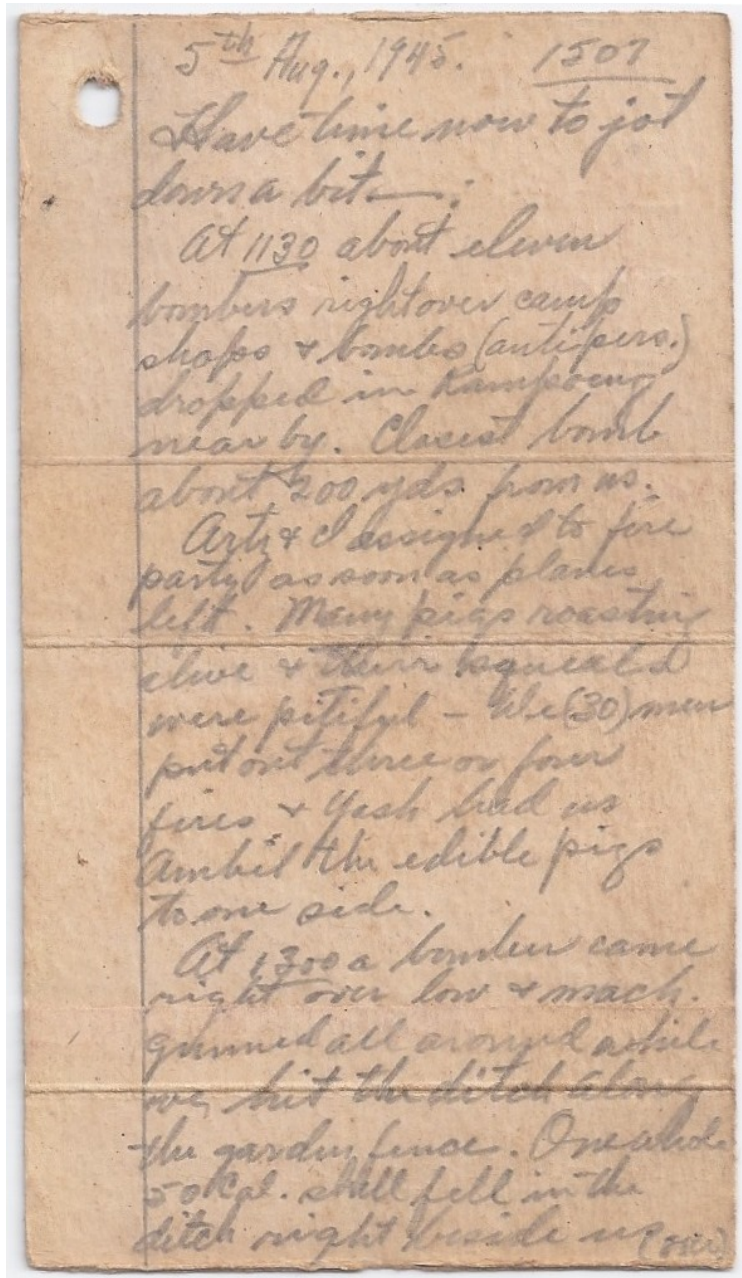 5th Aug., 1945. 1507
Have time now to jot
down a bit — :
At 1130 about eleven
bombers right over camp
shops & bombs (antipers.)
dropped in Kampoeng
near by. Closest bomb
about 200 yds. from us.
Arty & I assigned to fire
party as soon as planes
left. Many pigs roasting
alive & their squeals
were pitiful – We (30) men
put out three or four
fires & Yash had us
Ambil the edible pigs
to one side.
At 1300 a bomber came
right over low & mach.
gunned all around while
we hit the ditch along
the garden fence. One whole
50 Cal. shell fell in the
ditch right beside us (over)